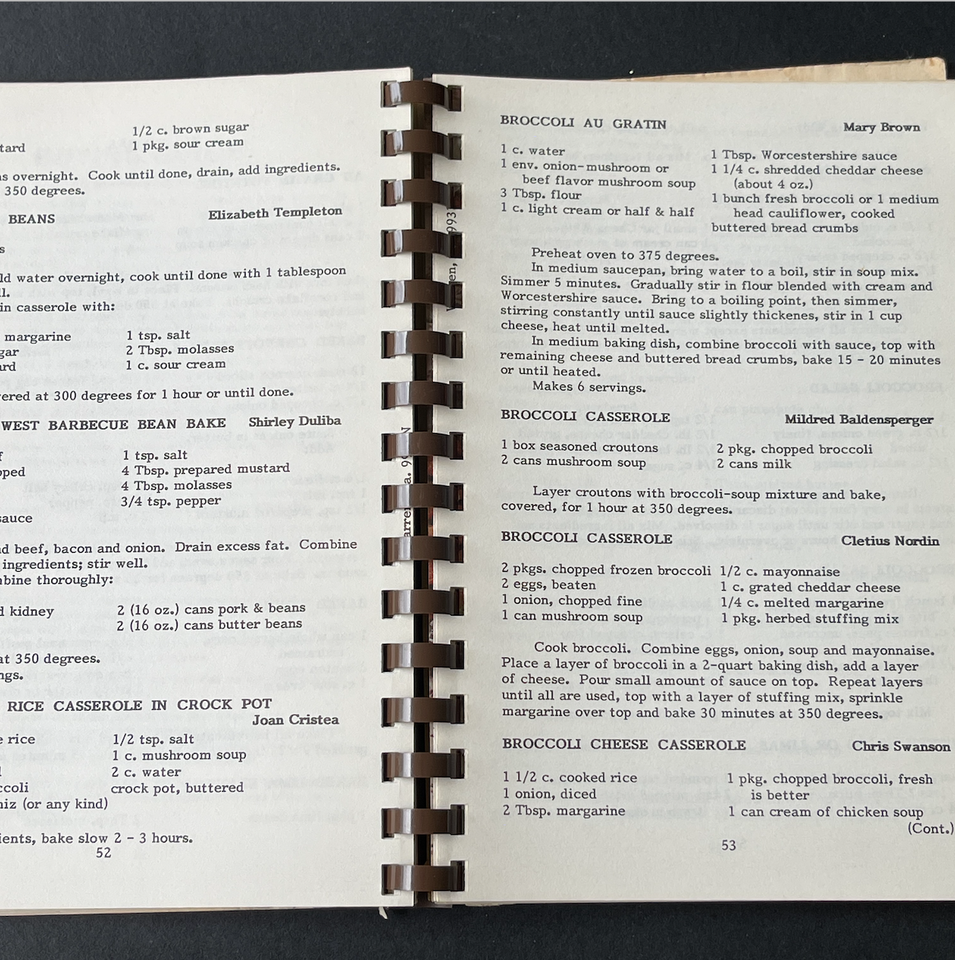 1/2 c. brown sugar
tard 1 pkg. sour cream
s overnight. Cook until done, drain, add ingredients.
350 degrees.
BEANS Elizabeth Templeton
s
ld water overnight, cook until done with 1 tablespoon
l.
in casserole with:
margarine 1 tsp. salt
gar 2 Tbsp. molasses
ard 1 c. sour cream
ered at 300 degrees for 1 hour or until done.
WEST BARBECUE BEAN BAKE Shirley Duliba
f 1 tsp. salt
pped 4 Tbsp. prepared mustard
4 Tbsp. molasses
3/4 tsp. pepper
sauce
d beef, bacon and onion. Drain excess fat. Combine
ingredients; stir well.
bine thoroughly:
d kidney 2 (16 oz.) cans pork & beans
2 (16 oz.) cans butter beans
at 350 degrees.
ngs.
RICE CASSEROLE IN CROCK POT
Joan Cristea
e rice 1/2 tsp. salt
1 c. mushroom soup
l 2 c. water
ccoli crock pot, buttered
niz (or any kind)
ients, bake slow 2 - 3 hours.
52
BROCCOLI AU GRATIN Mary Brown
1 c. water 1 Tbsp. Worcestershire sauce
1 env. onion-mushroom or 1 1/4 c. shredded cheddar cheese
beef flavor mushroom soup (about 4 oz.)
3 Tbsp. flour 1 bunch fresh broccoli or 1 medium
1 c. light cream or half & half head cauliflower, cooked
buttered bread crumbs
Preheat oven to 375 degrees.
In medium saucepan, bring water to a boil, stir in soup mix.
Simmer 5 minutes. Gradually stir in flour blended with cream and
Worcestershire sauce. Bring to a boiling point, then simmer,
stirring constantly until sauce slightly thickenes, stir in 1 cup
cheese, heat until melted.
In medium baking dish, combine broccoli with sauce, top with
remaining cheese and buttered bread crumbs, bake 15 - 20 minutes
or until heated.
Makes 6 servings.
BROCCOLI CASSEROLE Mildred Baldensperger
1 box seasoned croutons 2 pkg. chopped broccoli
2 cans mushroom soup 2 cans milk
Layer croutons with broccoli-soup mixture and bake,
covered, for 1 hour at 350 degrees.
BROCCOLI CASSEROLE Cletius Nordin
2 pkgs. chopped frozen broccoli 1/2 c. mayonnaise
2 eggs, beaten 1 c. grated cheddar cheese
1 onion, chopped fine 1/4 c. melted margarine
1 can mushroom soup 1 pkg. herbed stuffing mix
Cook broccoli. Combine eggs, onion, soup and mayonnaise.
Place a layer of broccoli in a 2-quart baking dish, add a layer
of cheese. Pour small amount of sauce on top. Repeat layers
until all are used, top with a layer of stuffing mix, sprinkle
margarine over top and bake 30 minutes at 350 degrees.
BROCCOLI CHEESE CASSEROLE Chris Swanson
1 1/2 c. cooked rice 1 pkg. chopped broccoli, fresh
1 onion, diced is better
2 Tbsp. margarine 1 can cream of chicken soup
(Cont.)
53